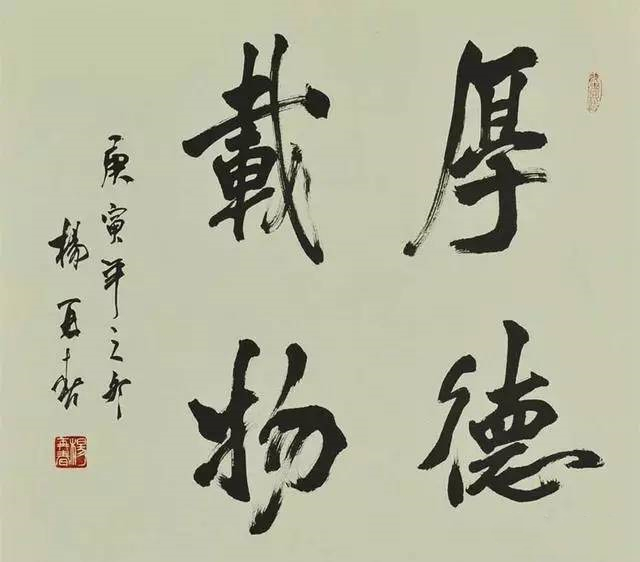 厚德
載物
庚寅年之
楊再春